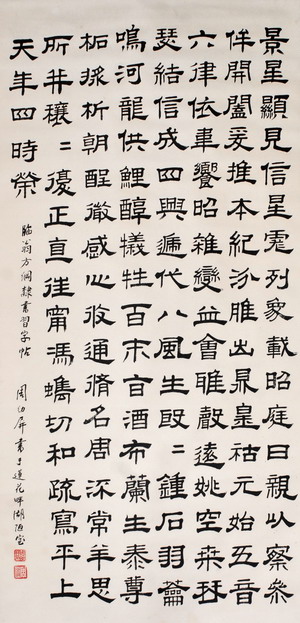 景星顯見信星彪列象載昭庭日親以察參
侔開闔爰推本紀汾脽出鼎皇祜元始五音
六律依韋饗昭雜變並會雅聲遠姚空桒琴
瑟結信成四興遞代八風生殷〻鍾石羽籥
鳴河龍供鯉醇犧牲百末旨酒布蘭生泰尊
柘漿析朝酲微感心攸通脩名周流常羊思
所并穰〻復正直往甯馮蠵切和疏寫平上
天年四時榮
臨翁方綱隸書習字帖
周屏書于蓮花畔湖海室